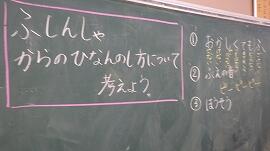 ふしんしゃ
からのひなんのし方について
考えよう。
①
②ふえの音
ピーピーピー
③ほうそう